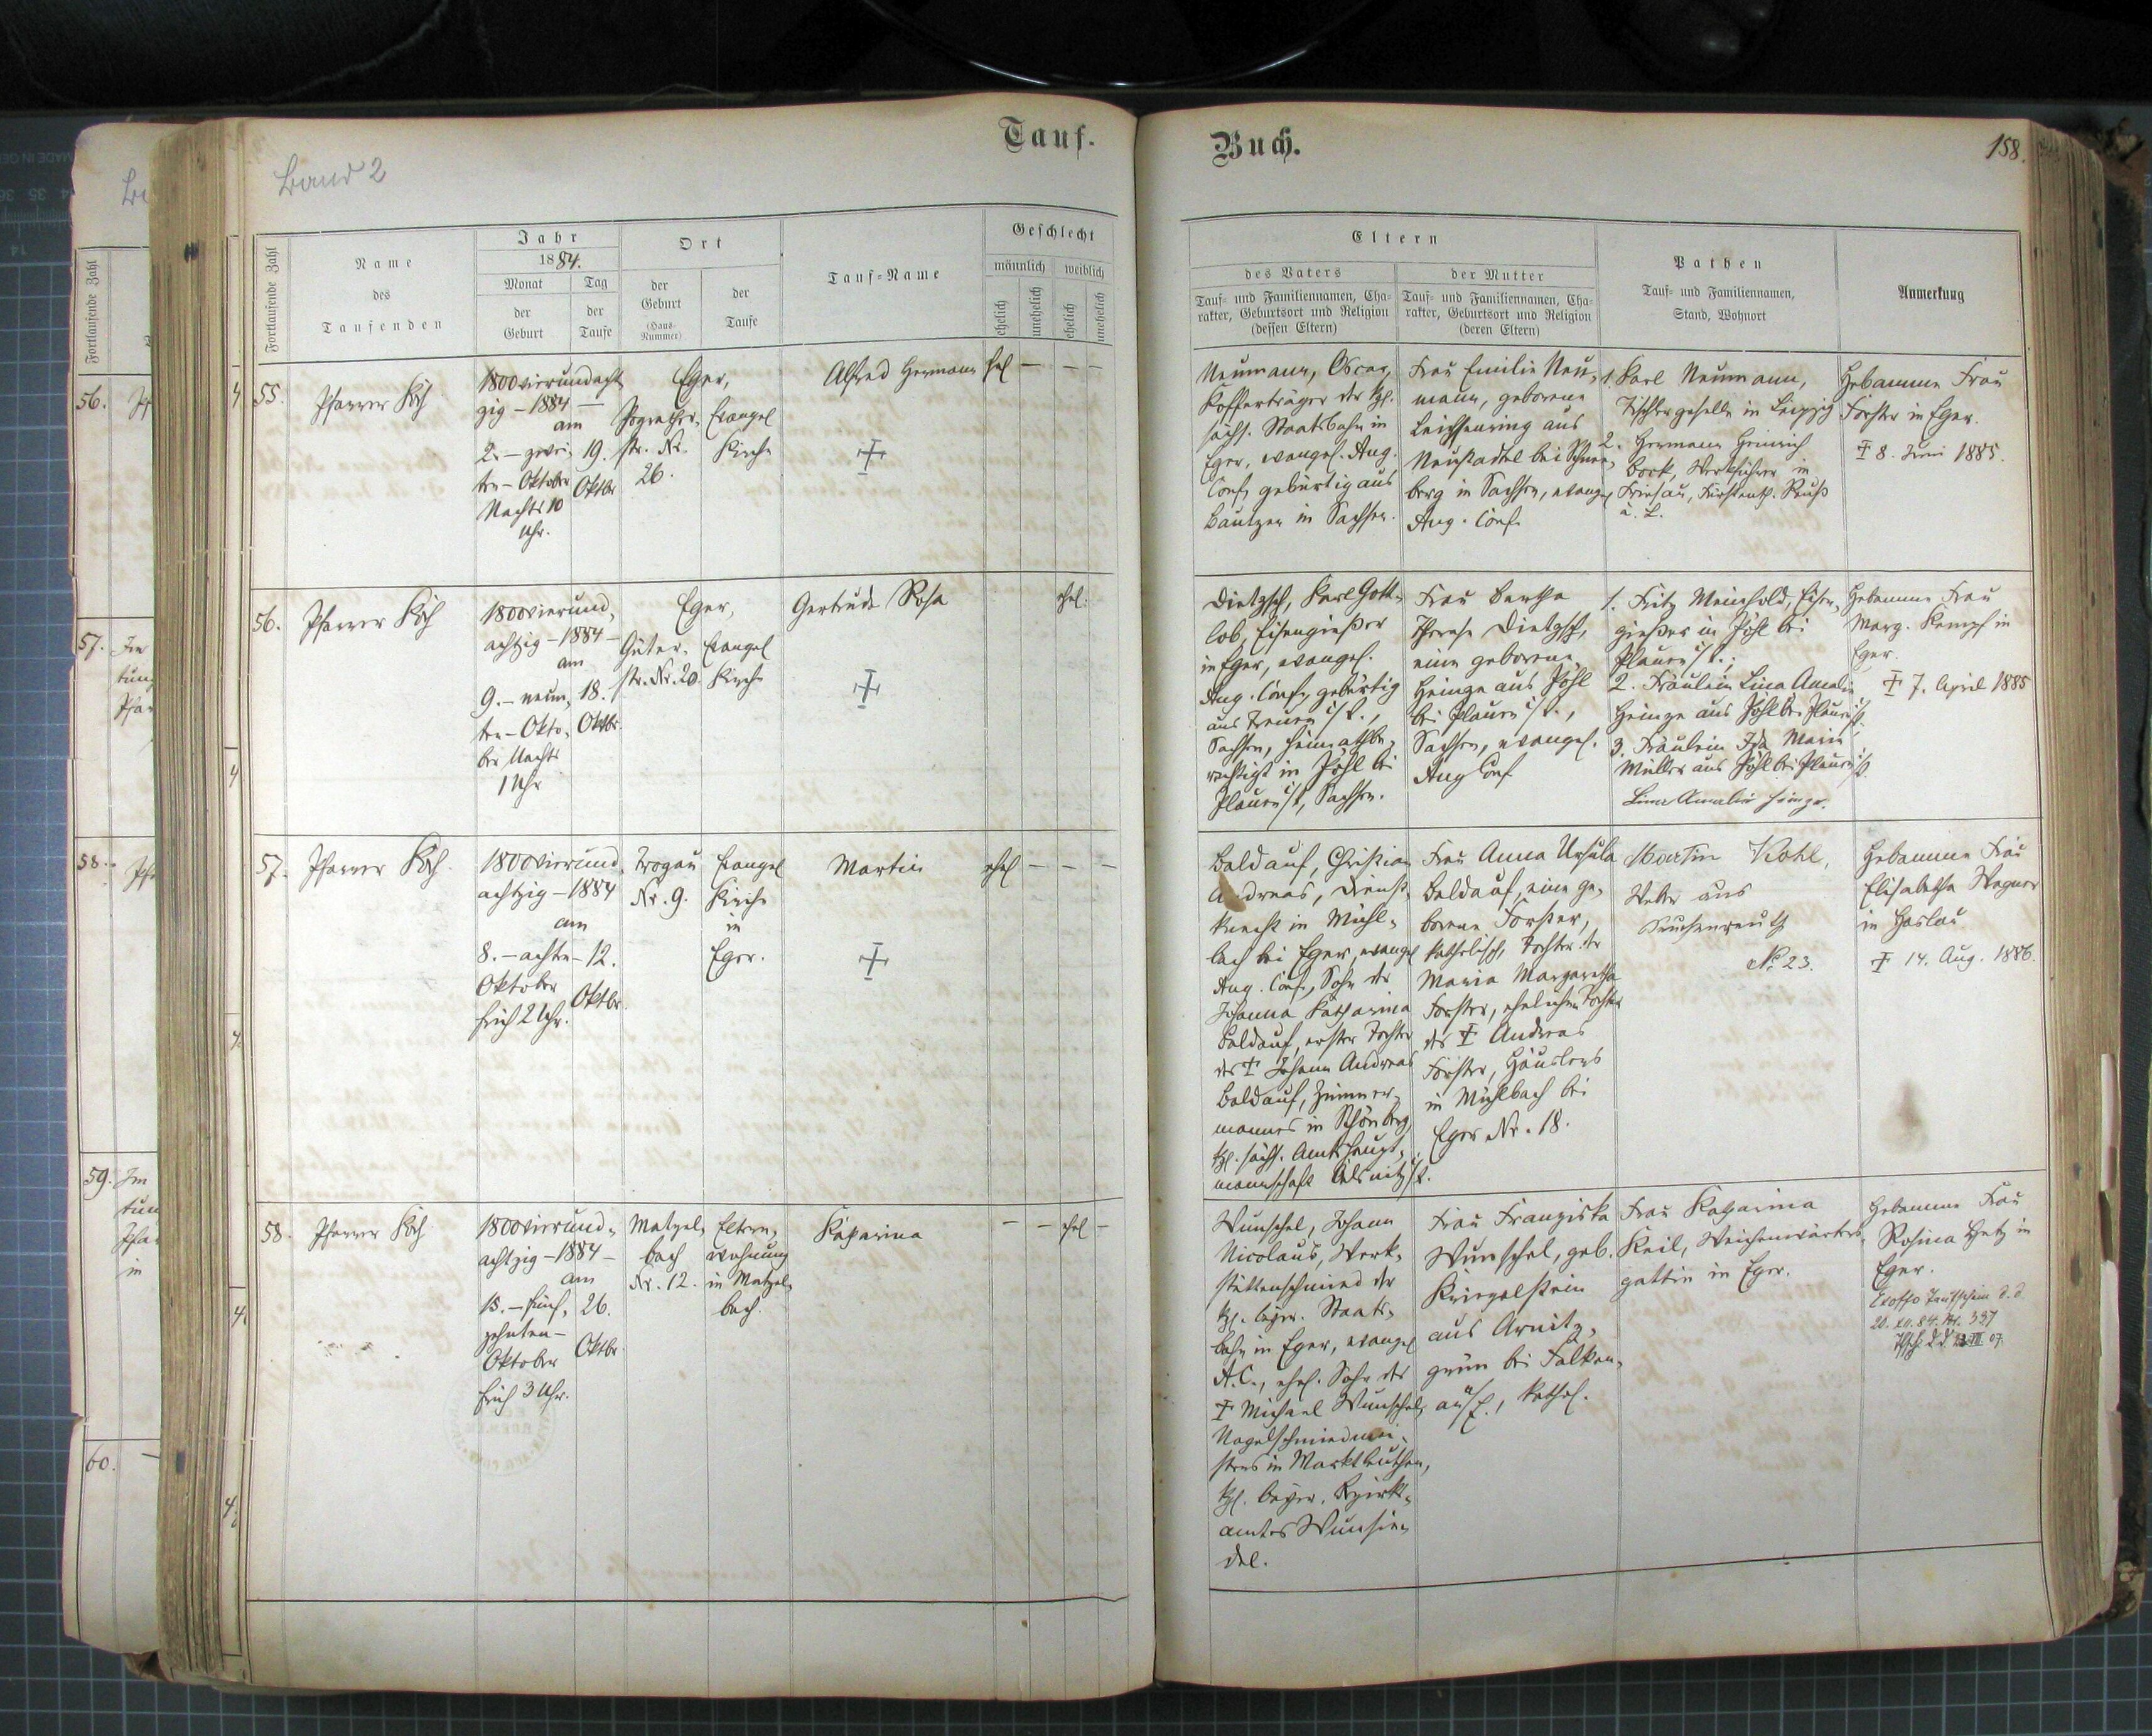 Tauf-
Buch.
158.
Band 2
Fortlaufende Zahl
Name
des
Taufenden
Jahr
1884.
Monat
der
Geburt
Tag
der
Taufe
Ort
der
Geburt
(Haus-
Nummer)
der
Taufe
Tauf-Name
Geschlecht
männlich
weiblich
ehelich
unehelich
ehelich
unehelich
Eltern
des Vaters
Tauf- und Familiennamen, Cha-
rakter, Geburtsort und Religion
(dessen Eltern)
der Mutter
Tauf- und Familiennamen, Cha-
rakter, Geburtsort und Religion
(deren Eltern)
Pathen
Tauf- und Familiennamen,
Stand, Wohnort
Anmerkung
55.
Pfarrer Koch
1800vierundacht
zig – 1884 –
am
2. – zwei-
ten – Oktober
Nachts 10
Uhr.
19.
Oktbr.
Eger,
str. Nr.
26.
Evangel
Kirche
Alfred Hermann
ehel
Neumann, Oscar,
Kofferträger der kgl.
sächs. Staatsbahn in
Eger, evangel. Aug.
Conf. gebürtig aus
Bautzen in Sachsen.
Frau Emilie Neu-
mann, geborene
Leichsenring aus
Neustädtel bei Schnee-
berg in Sachsen, evangel
Aug. Conf.
1. Karl Neumann,
Tischlergeselle in Leipzig
2. Hermann Heinrich
Bock, Werkführer in
Friesau, Fürstenth. Reuß
ä. L.
Hebamme Frau
Forster in Eger.
† 8. Juni 1885.
56.
Pfarrer Koch
1800vierund-
achtzig – 1884 –
am
9. – neun-
ten – Okto-
ber Nachts
1 Uhr
18.
Oktbr.
Eger,
Güter-
str. Nr. 20.
Evangel
Kirche
Gertrude Rosa
ehel.
Dietzsch, Karl Gott-
lob, Eisengießer
in Eger, evangel.
Aug. Conf. gebürtig
aus Treuen i/V.,
Sachsen, heimathbe-
rechtigt in Pöhl bei
Plauen i/V, Sachsen.
Frau Bertha
Therese Dietzsch,
eine geborene
Heinze aus Pöhl
bei Plauen i/V.,
Sachsen, evangel.
Aug Conf
1. Fritz Meinhold, Eisen-
gießer in Pöhl bei
Plauen i/V.;
2. Fräulein Lina Amalie
Heinze aus Pöhl bei Plauen i/V.;
3. Fräulein Ida Marie
Müller aus Pöhl bei Plauen i/V.
Lina Amalie Heinze.
Hebamme Frau
Marg. Kempf in
Eger.
† 7. April 1885
57.
Pfarrer Koch.
1800vierund-
achtzig – 1884
am
8. – achten –
Oktober
früh 2 Uhr.
12.
Oktbr.
Trogau
Nr. 9.
Evangel
Kirche
in
Eger.
Martin
ehel
Baldauf, Christian
Andreas, Dienst-
knecht in Mühl-
bach bei Eger, evangel
Aug. Conf., Sohn der
Johanna Katharina
Baldauf, erster Tochter
des † Johann Andreas
Baldauf, Zimmer-
mannes in Schönberg,
kgl. sächs. Amtshaupt-
mannschaft Oelsnitz i/V.
Frau Anna Ursula
Baldauf, eine ge-
borene Forster,
katholisch, Tochter der
Maria Margaretha
Forster, ehelichen Tochter
des † Andreas
Forster, Häuslers
in Mühlbach bei
Eger Nr. 18.
Martin Kohl,
Weber aus
No. 23.
Hebamme Frau
Elisabetha Wagner
in Haslau
† 14. Aug. 1886.
58.
Pfarrer Koch
1800vierund-
achtzig – 1884 –
am
15. – fünf-
zehnten –
Oktober
früh 3 Uhr.
26.
Oktbr.
Matzel-
bach
Nr. 12.
Eltern-
wohnung
in Matzel-
bach.
Katharina
ehel
Wunschel, Johann
Nicolaus, Werk-
stättenschmied der
kgl. bayer. Staats-
bahn in Eger, evangel
A. C., ehel. Sohn des
† Michael Wunschel,
Nagelschmiedmei-
sters in Marktleuthen,
kgl. bayer. Bezirks-
amtes Wunsie-
del.
Frau Franziska
Wunschel, geb.
Kriegelstein
aus Arnitz-
grün bei Falken-
au a/E., kathol.
Frau Katharina
Keil, Weichenwärters-
gattin in Eger.
Hebamme Frau
Rosina Hetz in
Eger.
Exoffo Taufschein d. d.
20. XII. 84. Nr. 337
56.
57.
58.
59.
60.